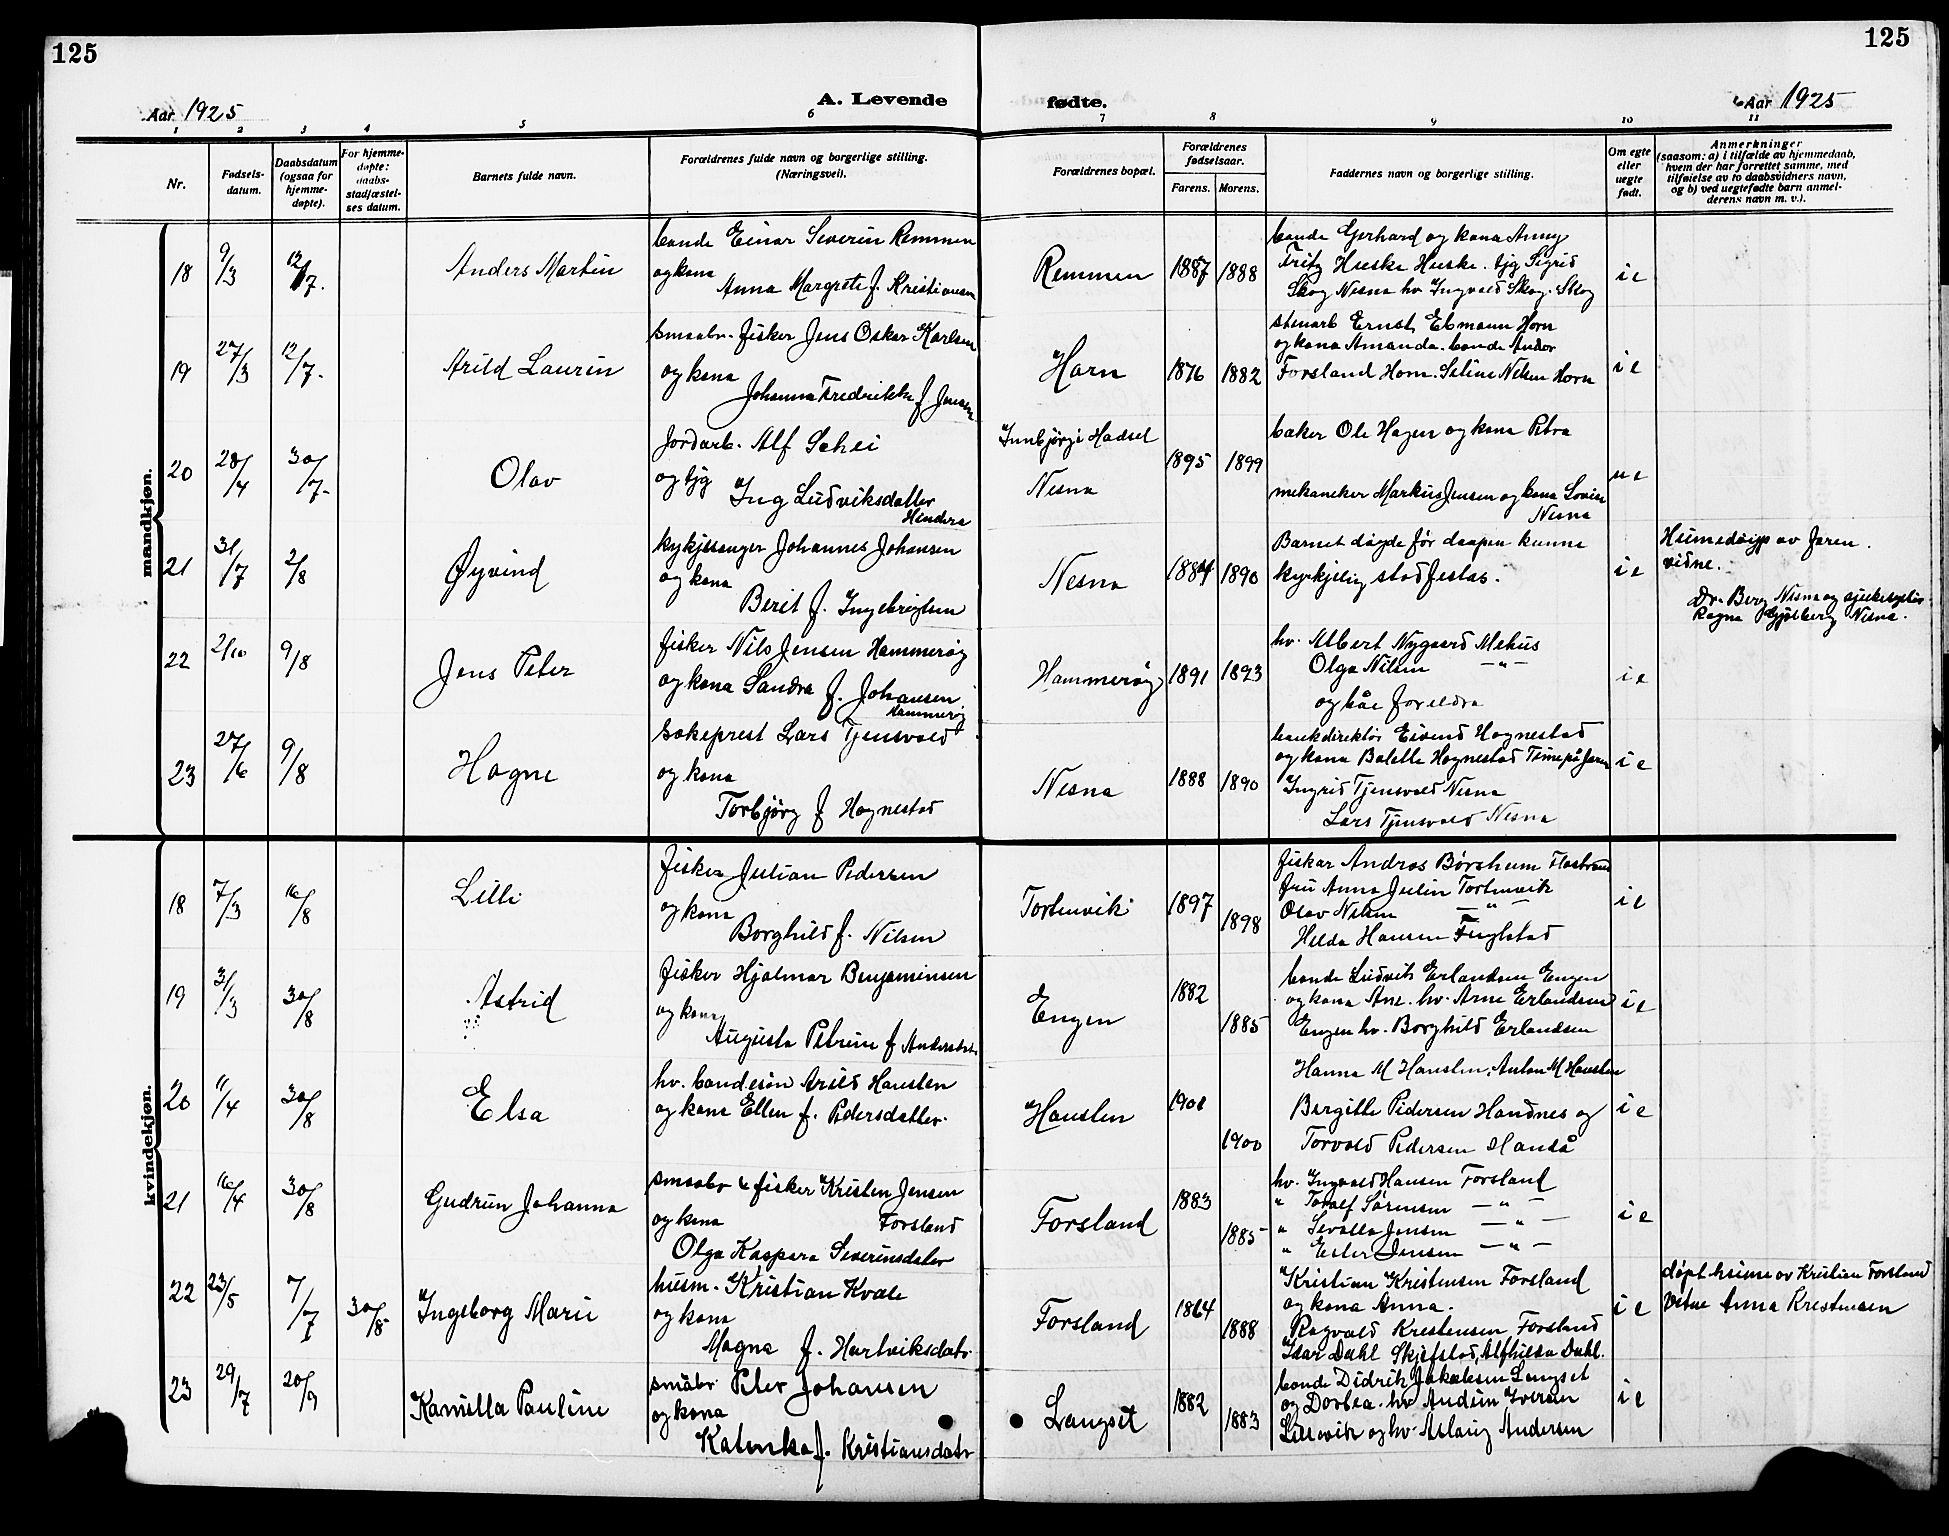 125
125
Aar 1925
A. Levende
fødte.
Aar 1925
1 2 3 4 5 6 7 8 9 10 11
Nr.
Fødsels-
datum.
Daabsdatum
(ogsaa for
hjemme-
døpte).
For hjemme-
døpte:
daabs-
stadfæstel-
ses datum.
Barnets fulde navn.
Forældrenes fulde navn og borgerlige stilling.
(Næringsvei).
Forældrenes bopæl.
Forældrenes
fødselsaar.
Farens. Morens.
Faddernes navn og borgerlige stilling.
Om egte
eller
uegte
født.
Anmerkninger
(saasom: a) i tilfælde av hjemmedaab,
hvem der har forrettet samme, med
tilføielse av to daabsvidners navn,
og b) ved uegtefødte barn anmel-
derens navn m. v.).
mandkjøn.
18 9/3 12/7. Anders Martin
bonde Einar Severin Remmen
og kona
Anna Margrete f. Kristiansen
Remmen 1887 1888
bonde Gerhard og kona Anny
Fritz Huske Huske. tjg Sigrid
Skog Nesna hv Ingvald Skog. Skog
i e
19 27/3 12/7. Arild Laurin
smaabr. fisker Jens Oskar Karlsen
og kona
Johanna Fredrikke f. Jensen
Horn 1876 1882
stenarb Ernst Ebmann Horn
og kona Amanda. bonde Andor
Forsland Horn. Seline Nilsen Horn
i e
20 28/4 30/7- Olav
Jordarb. Alf Schei
og tjg
Ing Ludviksdatter
Hindera
Innbjørg i Hadsel
Nesna
1895 1899
baker Ole Hagen og kona Petra
mekaneker Markus Jensen og kona Lovise
Nesna
u e
21 31/7 2/8 Øyvind
kyrkjesanger Johannes Johansen
og kona
Berit f. Ingebrigtsen
Nesna 1884 1890
Barnet døyde før daapen kunne
kyrkjelig stadfestas.
i e
Heimedøypt av faren.
vidne.
Dr. Berg Nesna og sjukesyster
Ragna Gjølberg Nesna.
22 2/10 9/8 Jens Peter
fisker Nils Jensen Hammerøy
og kona Sandra f. Johansen
Hammerøy
Hammerøy 1891 1893
hv. Albert Nygaard Mehus
Olga Nilsen -"-
og båe foreldra
i e
23 27/6 9/8 Hogne
Sokeprest Lars Tjensvold
og kona
Torbjørg f Hognestad
Nesna 1888 1890
bankdirektør Eivind Hognestad
og kona Bolette Hognestad Time på Jæren
Ingrid Tjensvold Nesna
Lars Tjensvold Nesna
i e
kvindekjøn.
18 7/3 16/8 Lilli
fisker Julian Pedersen
og kona
Borghild f. Nilsen
Tortenvik 1897 1898
fiskar Andras Børsheim Flostrand
fru Anna Julin Tortenvik
Olav Nilsen -"-
Helda Hansen Fuglstad
i e
19 31/3 30/8 Astrid
fisker Hjalmar Benjaminsen
og kona
Augusta Petrine f Andersdtr
Engen 1882 1885
bonde Ludvik Erlandsen Engen
og kona Ane. hv. Arne Erlandsen
Engen hv. Borghild Erlandsen
i e
20 11/4 30/8 Elsa
hv. bondesøn Arild Hansten
og kona Ellen f. Pedersdatter.
Hansten 1901 1900
Hanna M Hansten, Anton M Hansten
Bergitte Pedersen Handnes og
Torvald Pedersen Handå
i e
21 16/4 30/8 Gudrun Johanna
smaabr & fisker Kristen Jensen
og kona Forsland
Olga Kaspara Severinsdatr
Forsland 1883 1885
hv. Ingvald Hansen Forsland
" Toralf Sørensen -"-
" Sevalla Jensen -"-
" Ester Jensen -"-
i e
22 23/5 7/7 30/8- Ingeborg Marie
husm. Kristian Kvale
og kona
Magna f. Hartviksdatr
Forsland 1864 1888
Kristian Kristensen Forsland
og kona Anna.
Ragvald Krestensen Forsland
Idar Dahl Skjefstad, Alfhilda Dahl.
i e
døpt heime av Kristian Forsland
Vitne Anna Krestensen
23 29/7 20/9 Kamilla Pauline
småbr Peter Johansen
og kona
Katinka f. Kristiansdatr
Langset 1882 1883
bonde Didrik Jakobsen Langset
og Dortea. hv Audun Iversen
Lillevik og hv. Aslaug Andersen
i e